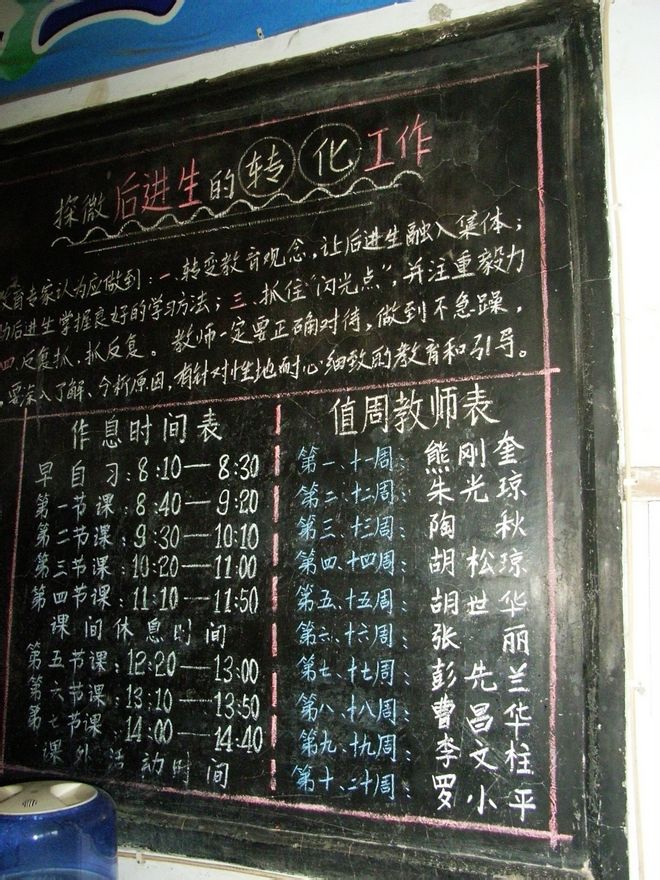 探微后进生的转化工作
育专家认为应做到:一、转变教育观念,让后进生融入集体;
助后进生掌握良好的学习方法;三、抓住“闪光点”,并注重毅力
四、反复抓、抓反复。教师一定要正确对待,做到不急躁,
要深入了解、分析原因,有针对性地耐心细致的教育和引导。
作息时间表
早自习:8:10—8:30
第一节课:8:40—9:20
第二节课:9:30—10:10
第三节课:10:20—11:00
第四节课:11:10—11:50
课间休息时间
第五节课:12:20—13:00
第六节课:13:10—13:50
第七节课:14:00—14:40
课外活动时间
值周教师表
第一、十一周:熊刚奎
第二、十二周:朱光琼
第三、十三周:陶秋
第四、十四周:胡松琼
第五、十五周:胡世华
第六、十六周:张丽
第七、十七周:彭先兰
第八、十八周:曹昌华
第九、十九周:李文柱
第十、二十周:罗小平